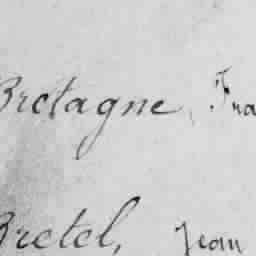 Bretagne, Fra
Bretel, Jean